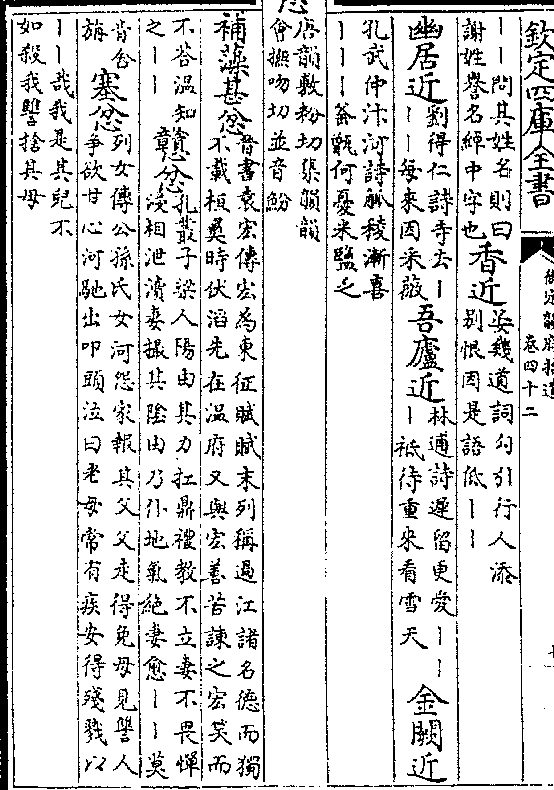 欽定四庫全書
御定韻府拾遺
卷四十二
｜｜問其姓名則曰
謝姓譽名綽中字也
香近
晏幾道詞勾引行人添
别恨因是語低｜｜
幽居近
劉得仁詩寺去｜
｜｜每來因采薇
吾廬近
林逋詩遲留更愛｜｜
｜祗待重來看雪天
金闕近
孔武仲汴河詩觚稜漸喜
｜｜｜釡甑何憂米鹽乏
忿
唐韻敷粉切集韻韻
會撫吻切並音魵
補藻甚忿
晉書袁宏傳宏為東征賦賦末列稱過江諸名德而獨
不載桓彝時伏滔先在温府又與宏善苦諫之宏笑而
不荅温知
之｜｜
戇忿
孔叢子梁人陽由其力扛鼎禮教不立妻不畏憚
浸相泄瀆妻撮其陰由乃仆地氣絶妻愈｜｜莫
肯舍
旃
塞忿
列女傳公孫氏女河怨家報其父父走得免母見讐人
爭欲甘心河馳出叩頭泣曰老母常有疾安得殘戮以
｜｜哉我是其兒不
如殺我讐捨其母